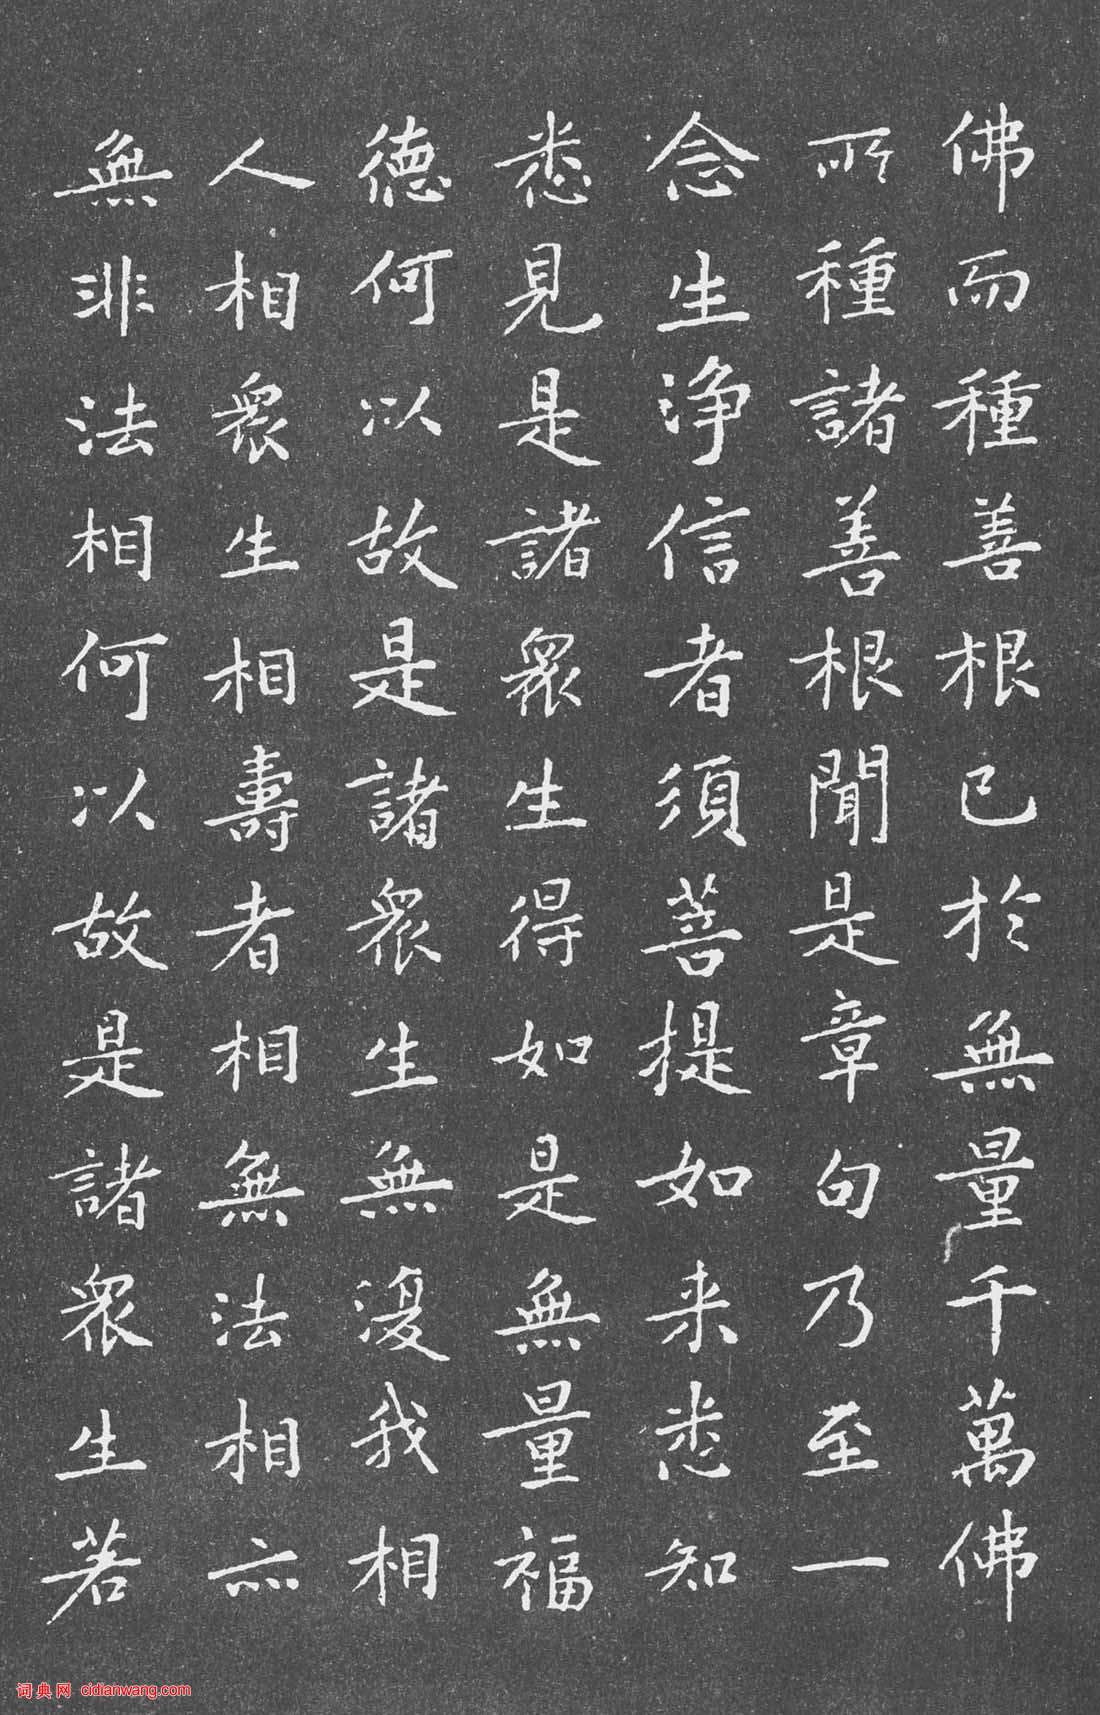 佛而種善根已於無量千萬佛
所種諸善根聞是章句乃至一
念生淨信者須菩提如来悉知
悉見是諸眾生得如是無量福
德何以故是諸眾生無復我相
人相眾生相壽者相無法相亦
無非法相何以故是諸眾生若
词典网 cidianwang.com